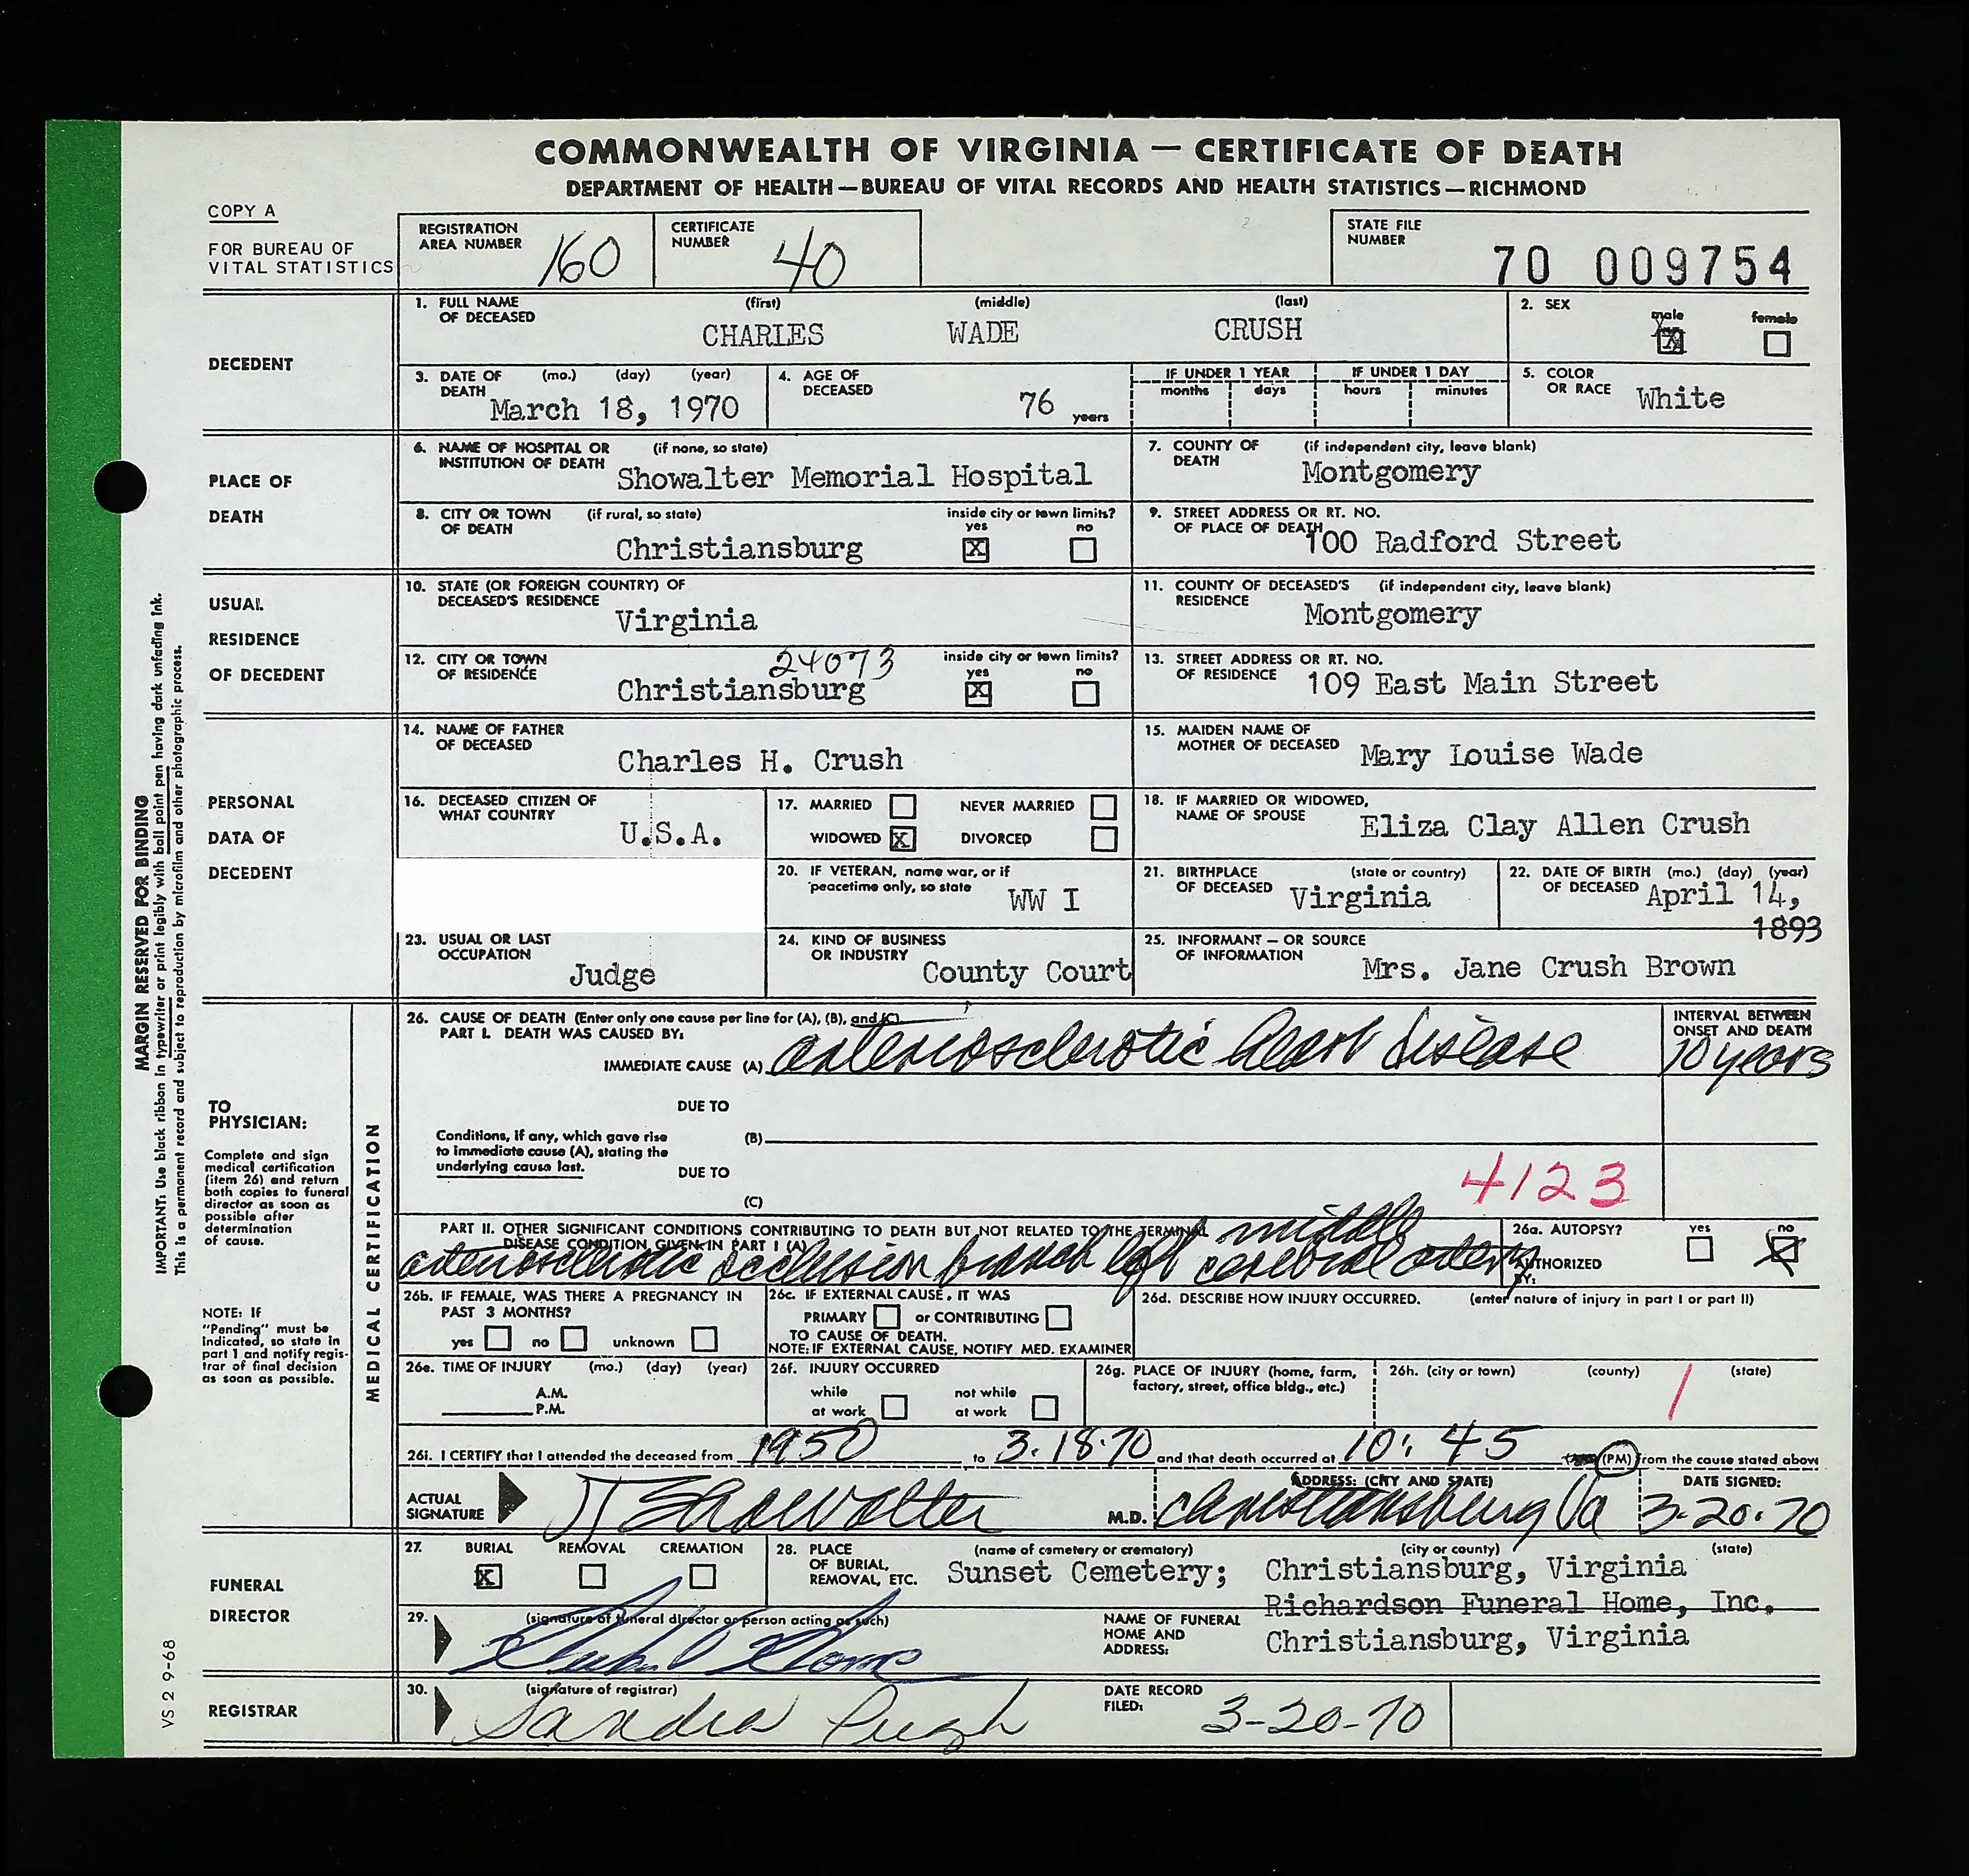 COMMONWEALTH OF VIRGINIA — CERTIFICATE OF DEATH
DEPARTMENT OF HEALTH—BUREAU OF VITAL RECORDS AND HEALTH STATISTICS—RICHMOND
COPY A
FOR BUREAU OF
VITAL STATISTICS
REGISTRATION
AREA NUMBER 160
CERTIFICATE
NUMBER 40
STATE FILE
NUMBER
70 009754
DECEDENT
1. FULL NAME (first) (middle) (last)
OF DECEASED
CHARLES WADE CRUSH
2. SEX
male female
X
3. DATE OF (mo.) (day) (year)
DEATH
March 18, 1970
4. AGE OF
DECEASED
76 years
IF UNDER 1 YEAR IF UNDER 1 DAY
months days hours minutes
5. COLOR
OR RACE White
PLACE OF
DEATH
6. NAME OF HOSPITAL OR (if none, so state)
INSTITUTION OF DEATH
Showalter Memorial Hospital
7. COUNTY OF (if independent city, leave blank)
DEATH
Montgomery
8. CITY OR TOWN (if rural, so state) inside city or town limits?
OF DEATH yes no
Christiansburg X
9. STREET ADDRESS OR RT. NO.
OF PLACE OF DEATH
100 Radford Street
USUAL
RESIDENCE
OF DECEDENT
10. STATE (OR FOREIGN COUNTRY) OF
DECEASED'S RESIDENCE
Virginia
11. COUNTY OF DECEASED'S (if independent city, leave blank)
RESIDENCE
Montgomery
12. CITY OR TOWN 24073 inside city or town limits?
OF RESIDENCE yes no
Christiansburg X
13. STREET ADDRESS OR RT. NO.
OF RESIDENCE
109 East Main Street
PERSONAL
DATA OF
DECEDENT
14. NAME OF FATHER
OF DECEASED
Charles H. Crush
15. MAIDEN NAME OF
MOTHER OF DECEASED
Mary Louise Wade
16. DECEASED CITIZEN OF
WHAT COUNTRY
U.S.A.
17. MARRIED NEVER MARRIED
WIDOWED X DIVORCED
18. IF MARRIED OR WIDOWED,
NAME OF SPOUSE
Eliza Clay Allen Crush
20. IF VETERAN, name war, or if
peacetime only, so state
WW I
21. BIRTHPLACE (state or country)
OF DECEASED
Virginia
22. DATE OF BIRTH (mo.) (day) (year)
OF DECEASED April 14,
1893
23. USUAL OR LAST
OCCUPATION
Judge
24. KIND OF BUSINESS
OR INDUSTRY
County Court
25. INFORMANT — OR SOURCE
OF INFORMATION
Mrs. Jane Crush Brown
MARGIN RESERVED FOR BINDING
IMPORTANT: Use black ribbon in typewriter or print legibly with ball point pen having dark unfading ink.
This is a permanent record and subject to reproduction by microfilm and other photographic process.
TO
PHYSICIAN:
Complete and sign
medical certification
(item 26) and return
both copies to funeral
director as soon as
possible after
determination
of cause.
NOTE: IF
"Pending" must be
indicated, so state in
part 1 and notify regis-
trar of final decision
as soon as possible.
MEDICAL CERTIFICATION
26. CAUSE OF DEATH (Enter only one cause per line for (A), (B), and (C)
PART I. DEATH WAS CAUSED BY:
IMMEDIATE CAUSE (A) arteriosclerotic heart disease
INTERVAL BETWEEN
ONSET AND DEATH
10 years
DUE TO
Conditions, if any, which gave rise
to immediate cause (A), stating the
underlying cause last.
(B)
DUE TO
(C)
4123
PART II. OTHER SIGNIFICANT CONDITIONS CONTRIBUTING TO DEATH BUT NOT RELATED TO THE TERMINAL
DISEASE CONDITION GIVEN IN PART I (A)
middle
arteriosclerotic occlusion branch left cerebral artery
26a. AUTOPSY? yes no
X
AUTHORIZED
BY:
26b. IF FEMALE, WAS THERE A PREGNANCY IN
PAST 3 MONTHS?
yes no unknown
26c. IF EXTERNAL CAUSE, IT WAS
PRIMARY or CONTRIBUTING
TO CAUSE OF DEATH.
NOTE: IF EXTERNAL CAUSE, NOTIFY MED. EXAMINER
26d. DESCRIBE HOW INJURY OCCURRED. (enter nature of injury in part I or part II)
26e. TIME OF INJURY (mo.) (day) (year)
A.M.
P.M.
26f. INJURY OCCURRED
while not while
at work at work
26g. PLACE OF INJURY (home, farm,
factory, street, office bldg., etc.)
26h. (city or town) (county) (state)
1
26i. I CERTIFY that I attended the deceased from 1950 to 3.18.70 and that death occurred at 10:45 (PM) from the cause stated above
ACTUAL
SIGNATURE
Showalter M.D.
ADDRESS: (CITY AND STATE)
Christiansburg Va
DATE SIGNED:
3-20-70
FUNERAL
DIRECTOR
27. BURIAL REMOVAL CREMATION
X
28. PLACE (name of cemetery or crematory) (city or county) (state)
OF BURIAL,
REMOVAL, ETC.
Sunset Cemetery; Christiansburg, Virginia
29. (signature of funeral director or person acting as such)
NAME OF FUNERAL
HOME AND
ADDRESS:
Richardson Funeral Home, Inc.
Christiansburg, Virginia
REGISTRAR
30. (signature of registrar)
Sandra Pugh
DATE RECORD
FILED: 3-20-70
VS 2 9-68